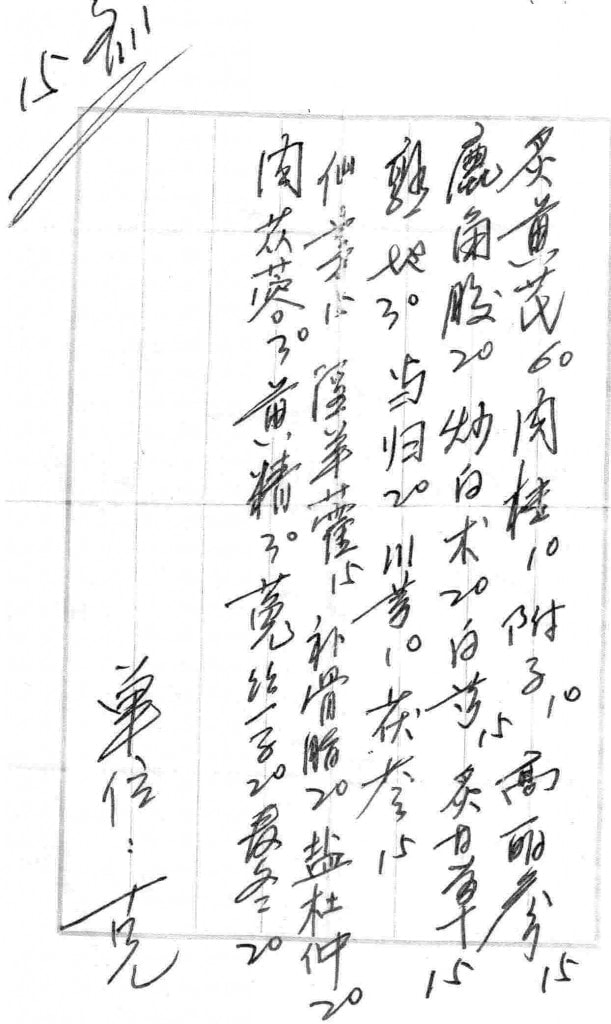 15剂
炙黄芪60 肉桂10 附子10 高丽参15
鹿角胶20 炒白术20 白芍15 炙甘草15
熟地30 当归20 川芎10 茯苓15
仙茅15 淫羊藿15 补骨脂20 盐杜仲20
肉苁蓉30 黄精30 菟丝子20 麦冬20
单位：克